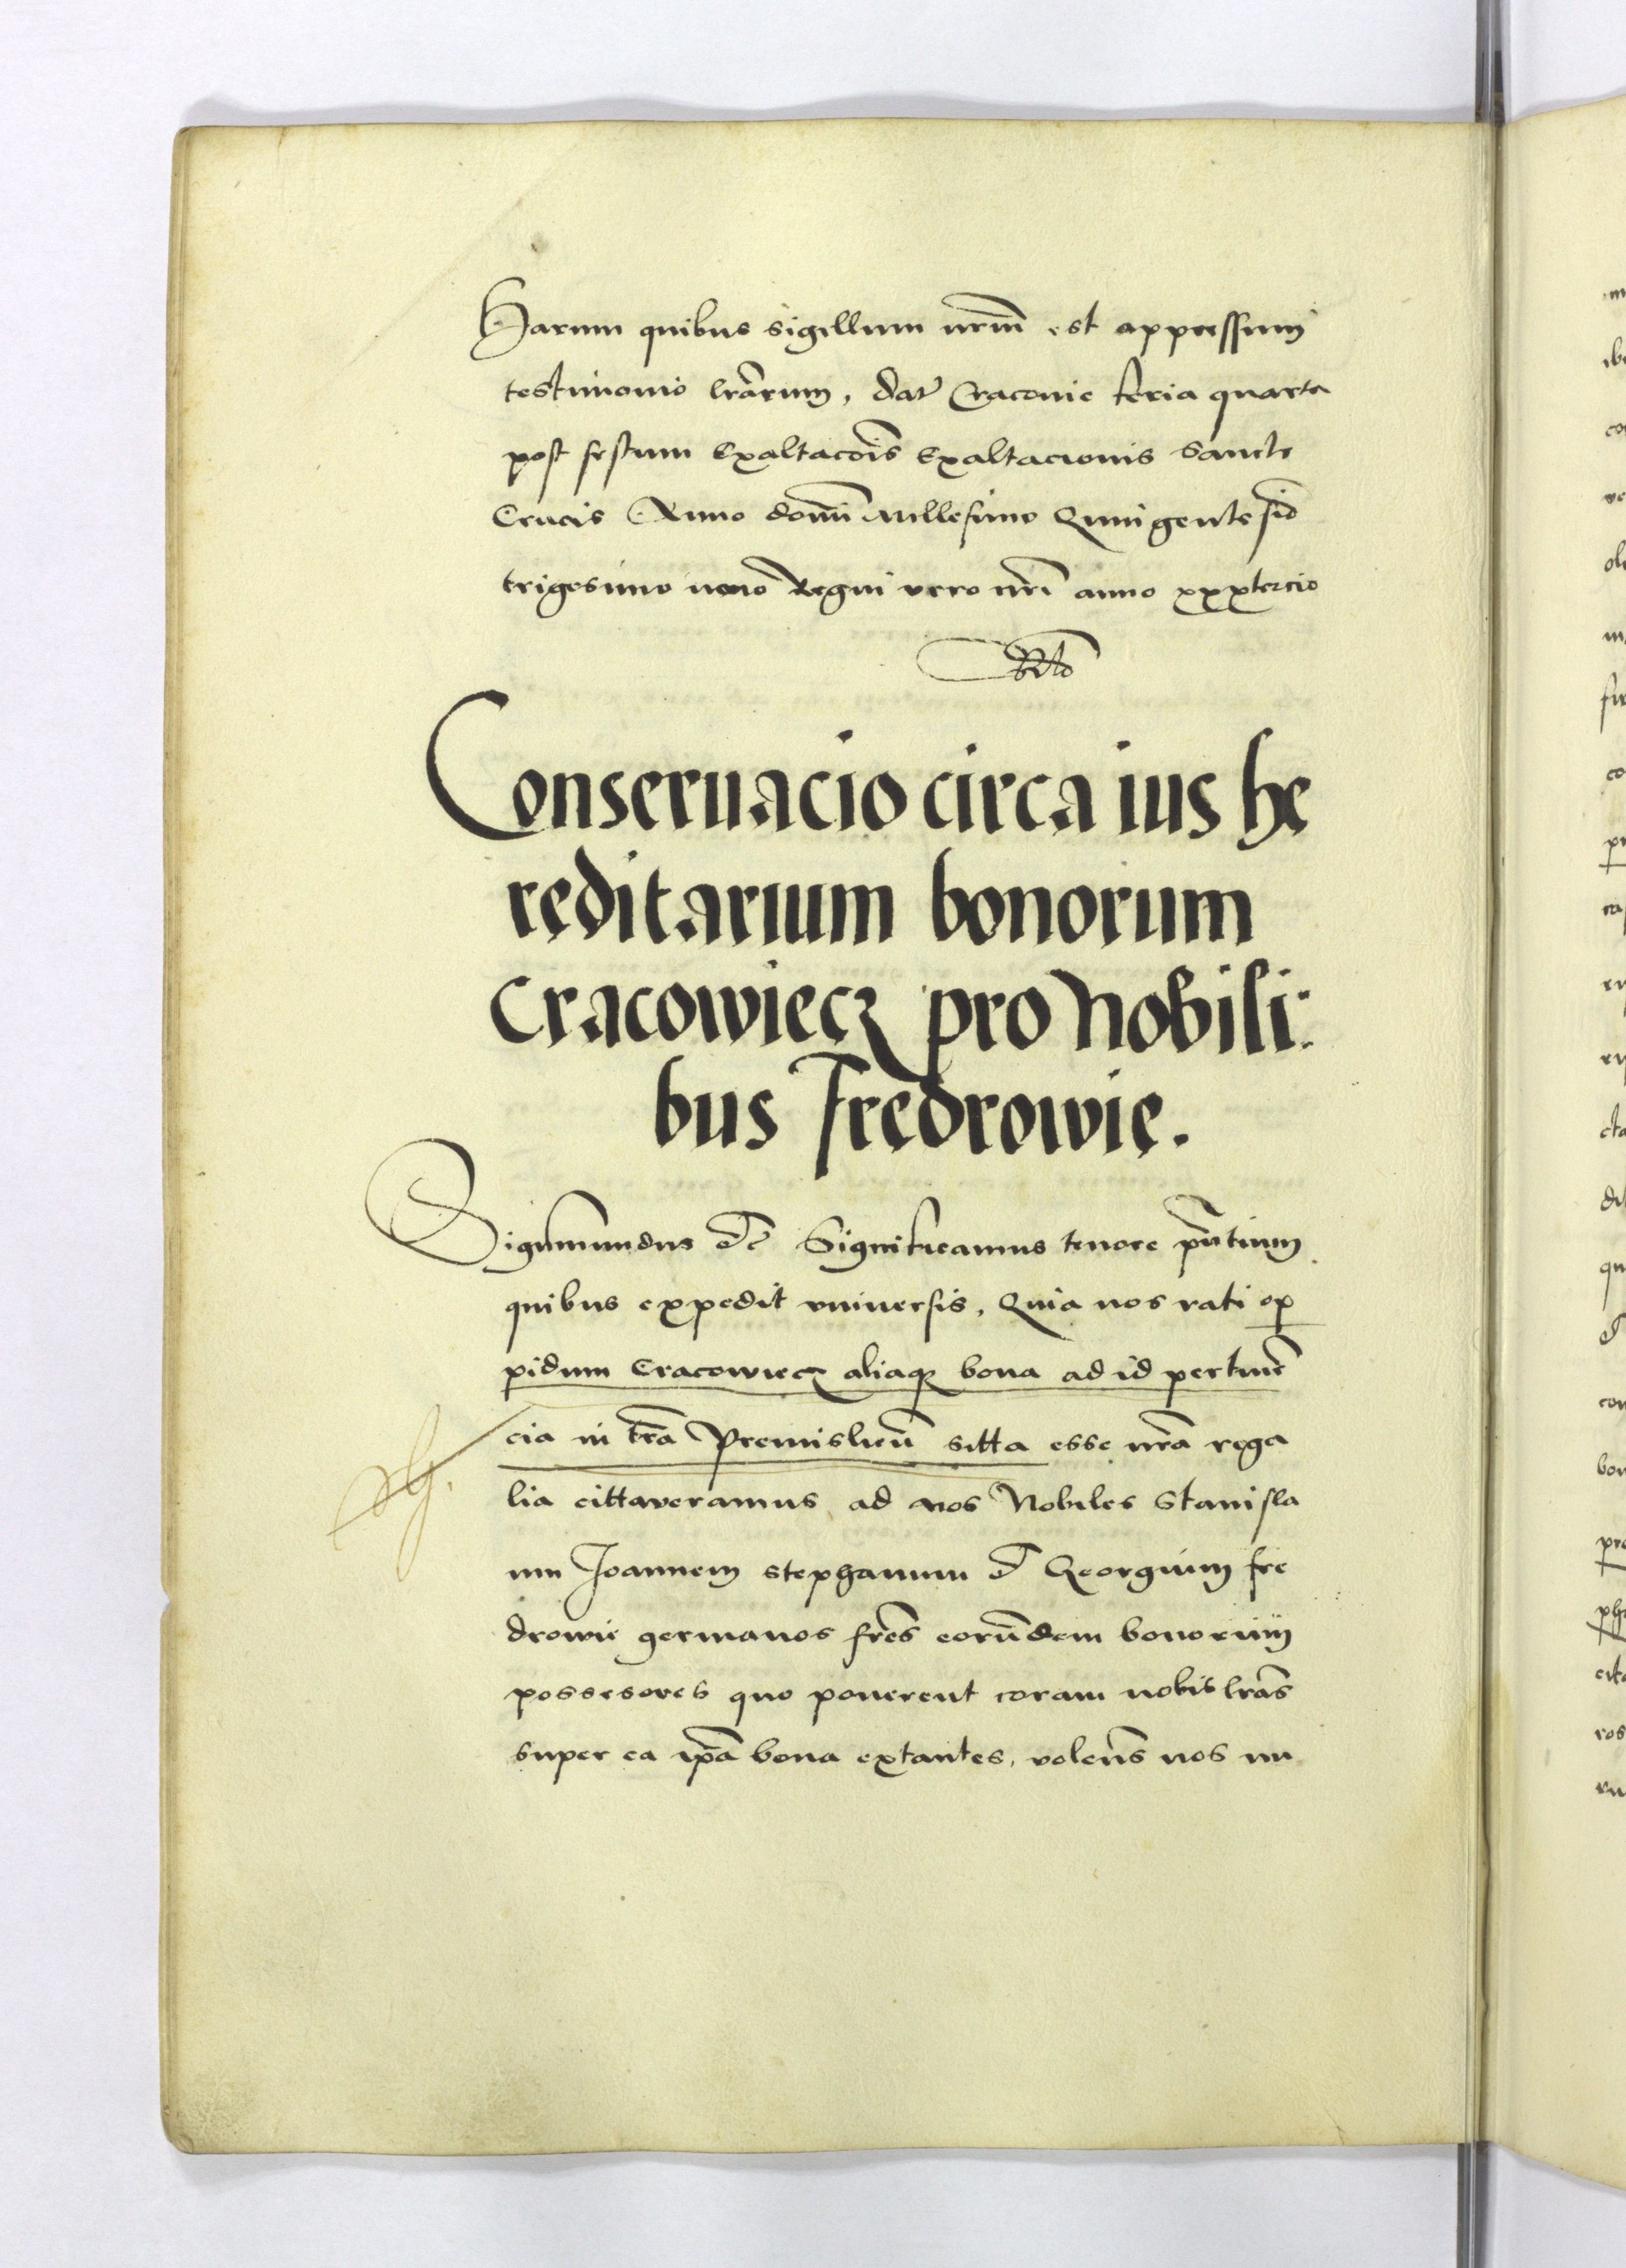 Harum quibus sigillum nrm̃ est appressum
testimonio lr̃arum, dat̃ Cracovie feria quarta
post festum Exaltacõis Exaltacionis Sancte
Crucis Anno domĩ Millesimo Quingentesĩo
trigesimo nono Regni vero nrĩ anno xxxtercio
Conseruacio circa ius he
reditarium bonorum
Cracowiecz pro Nobili:
bus Fredrowie.
Sigismundus etc̃ Significamus tenore pñtium
quibus expedit vniuersis, Quia nos rati op
pidum Cracowiecz aliaq bona ad id pertineñ
cia in tr̃a Premislieñ sitta esse nr̃a rega
lia cittaveramus ad nos Nobiles Stanisla
um Joannem Stephanum et Georgium Fre
drowie germanos fr̃es eorũdem bonorum
possesores quo ponerent coram nobis lr̃as
super ea ip̃a bona extantes, voleñs nos nu